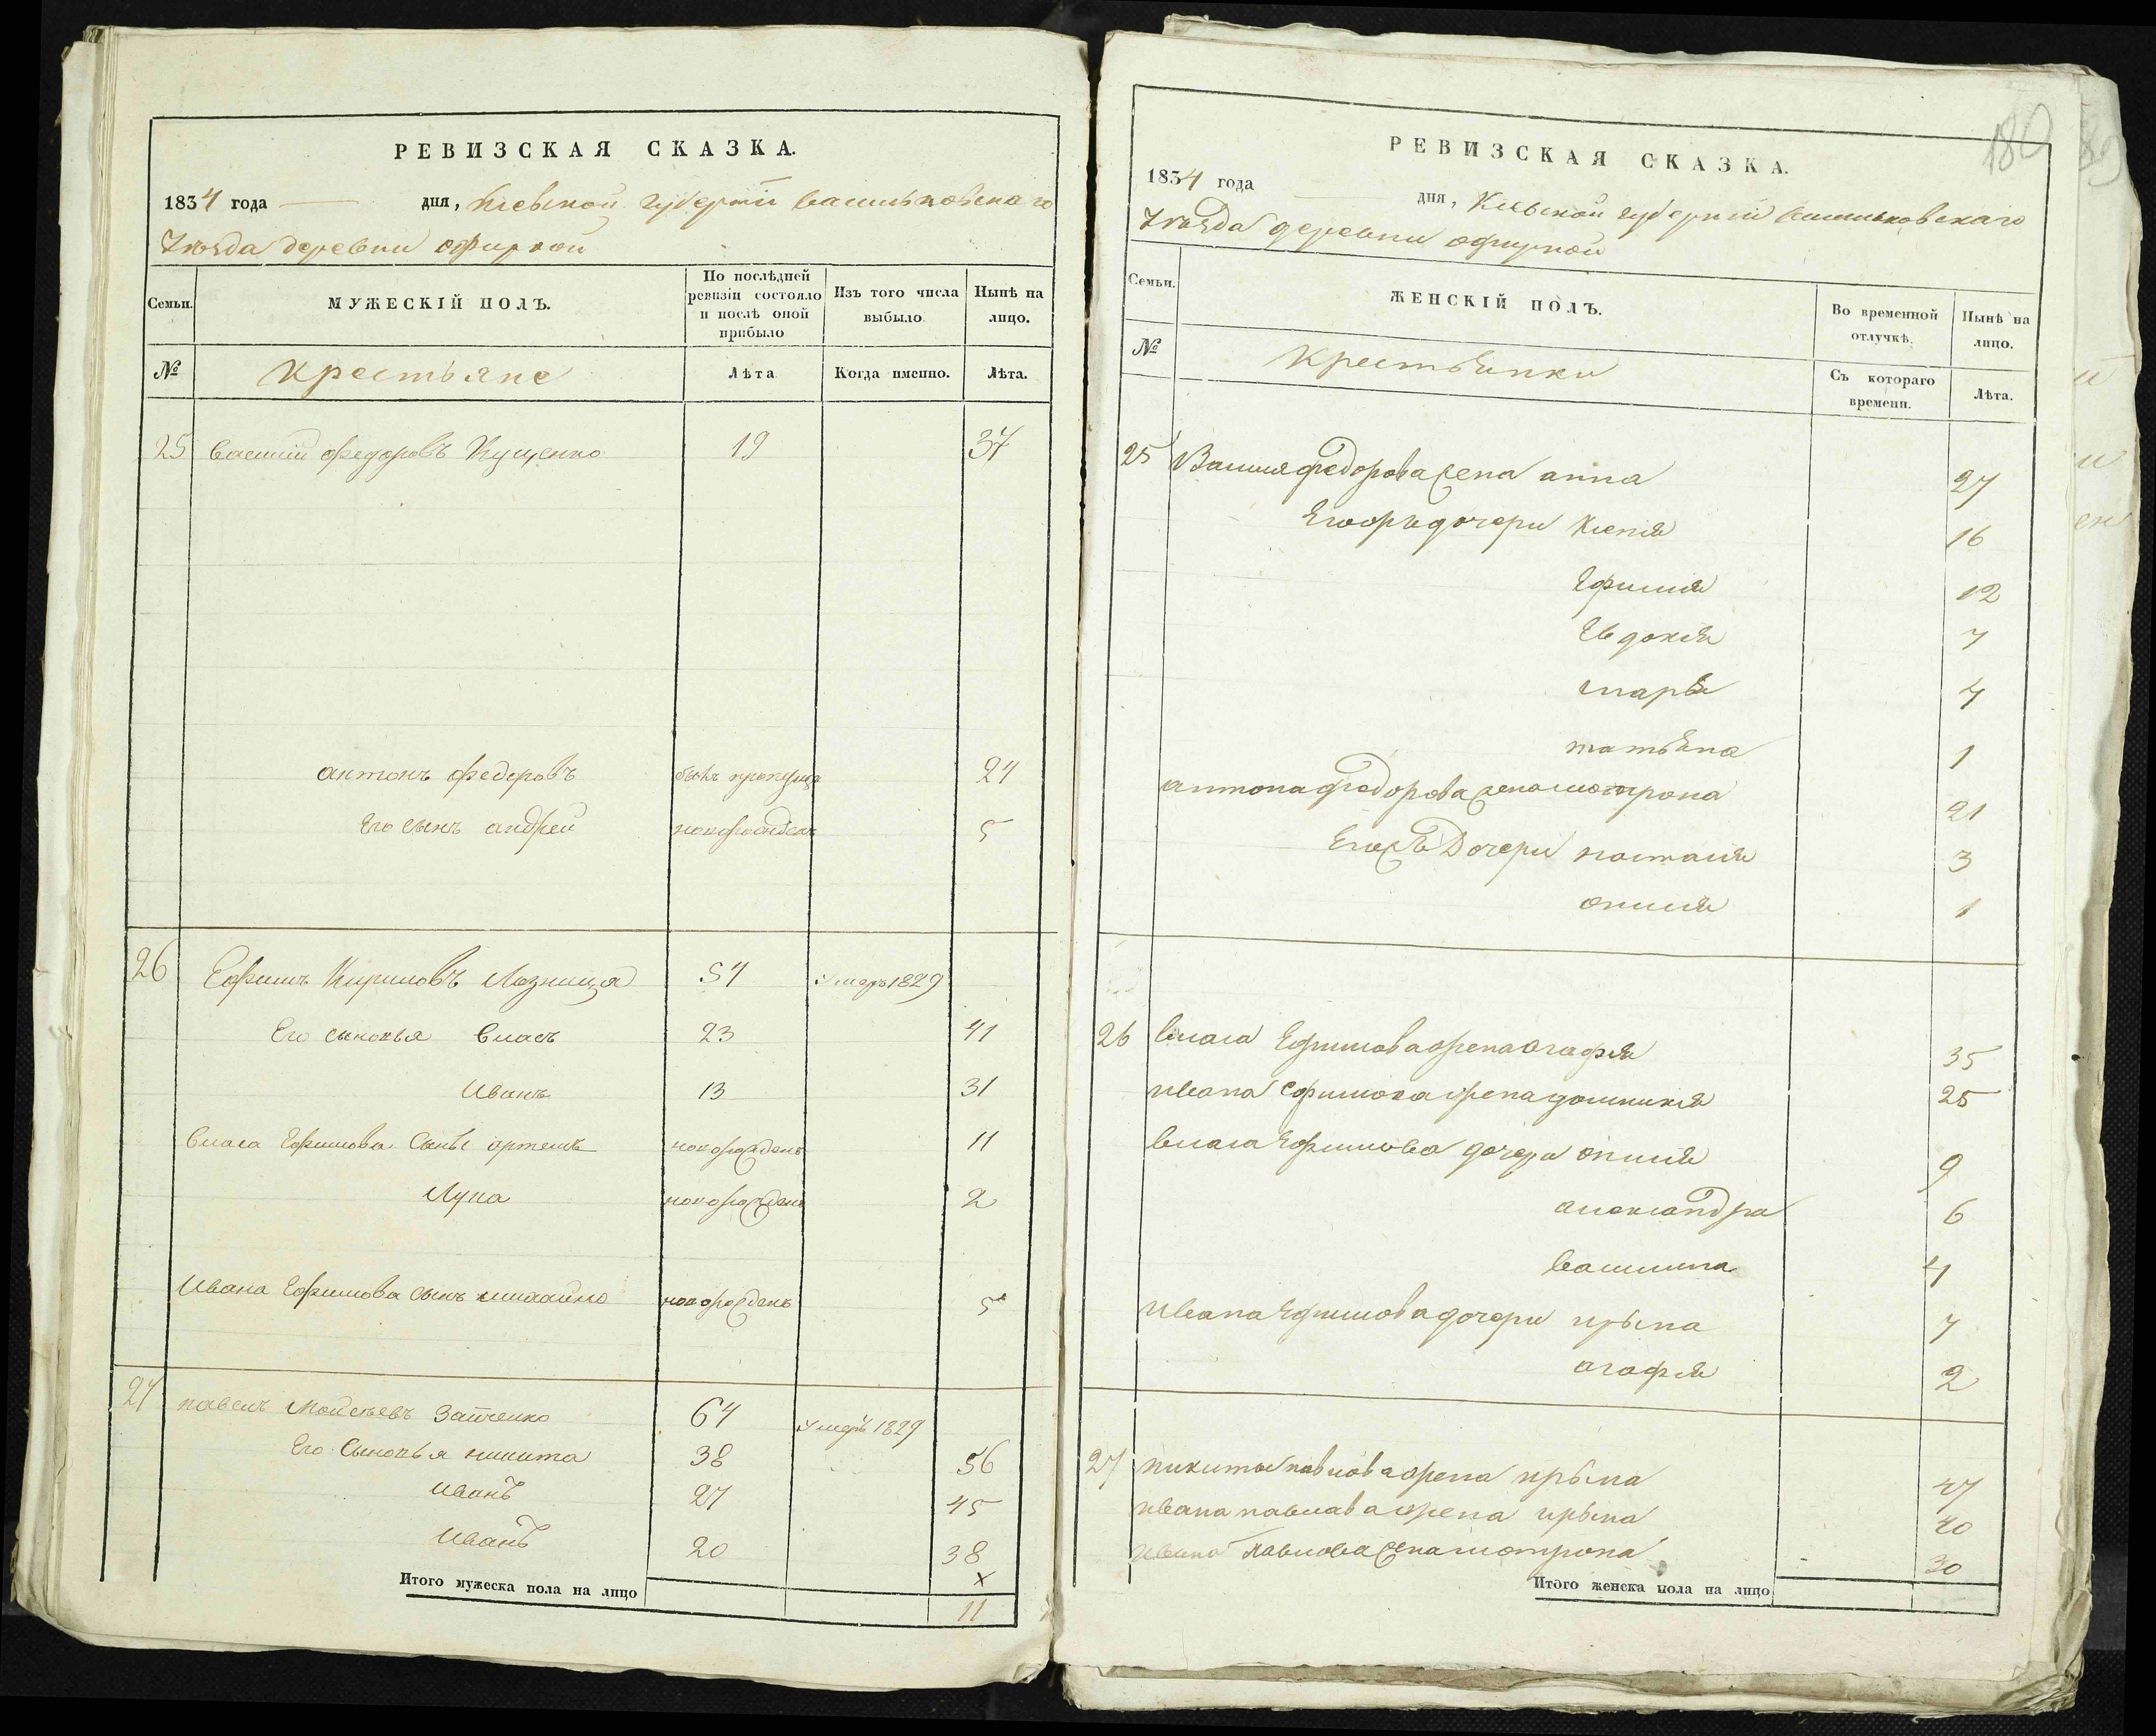 РЕВИЗСКАЯ СКАЗКА.
1834 года — дня, Киевской губернiи васильковскаго
Уѣзда деревни офирной
Семьи. МУЖЕСКIЙ ПОЛЪ. По послѣдней ревизiи состояло и послѣ оной прибыло Изъ того числа выбыло Нынѣ на лицо.
№ крестьяне Лѣта Когда именно. Лѣта.
25 василiй федоровъ Куценко 19 37
антонъ федоровъ былъ 24
Его сынъ андрей новорожденъ 5
26 Ефимъ Кириловъ Лозница 54 Умеръ 1829
Его сыновья власъ 23 41
Иванъ 13 31
власа Ефимова Сынъ артемъ новорожденъ 11
Лука новорожденъ 2
Ивана Ефимова сынъ михайло новорожденъ 5
27 павелъ Мойсѣевъ Зайченко 64 Умеръ 1829
Его Сыновья никита 38 56
Иванъ 27 45
Иванъ 20 38
Итого мужеска пола на лицо ×
11
180
РЕВИЗСКАЯ СКАЗКА.
1834 года дня, Киевской губернiй васильковскаго
Уѣзда деревни офирной
Семьи. ЖЕНСКIЙ ПОЛЪ. Во временной отлучкѣ. Нынѣ на лицо.
№ Крестьянки Съ котораго времени. Лѣта.
25 Василя федорова жена анна 27
дочери Ксенiя 16
Ефимiя 12
Евдокiя 7
марья 4
татьяна 1
антона федорова жена мотрона 21
Дочери настасiя 3
онисiя 1
26 власа Ефимова жена агафiя 35
ивана Ефимова жена домникiя 25
власа Ефимова дочери онисiя 9
александра 6
василина 4
ивана Ефимова дочери ирына 7
агафiя 2
27 никиты павлова жена ирына 47
ивана павлава жена ирына 40
ивана Павлова жена мотрона 30
Итого женска пола на лицо